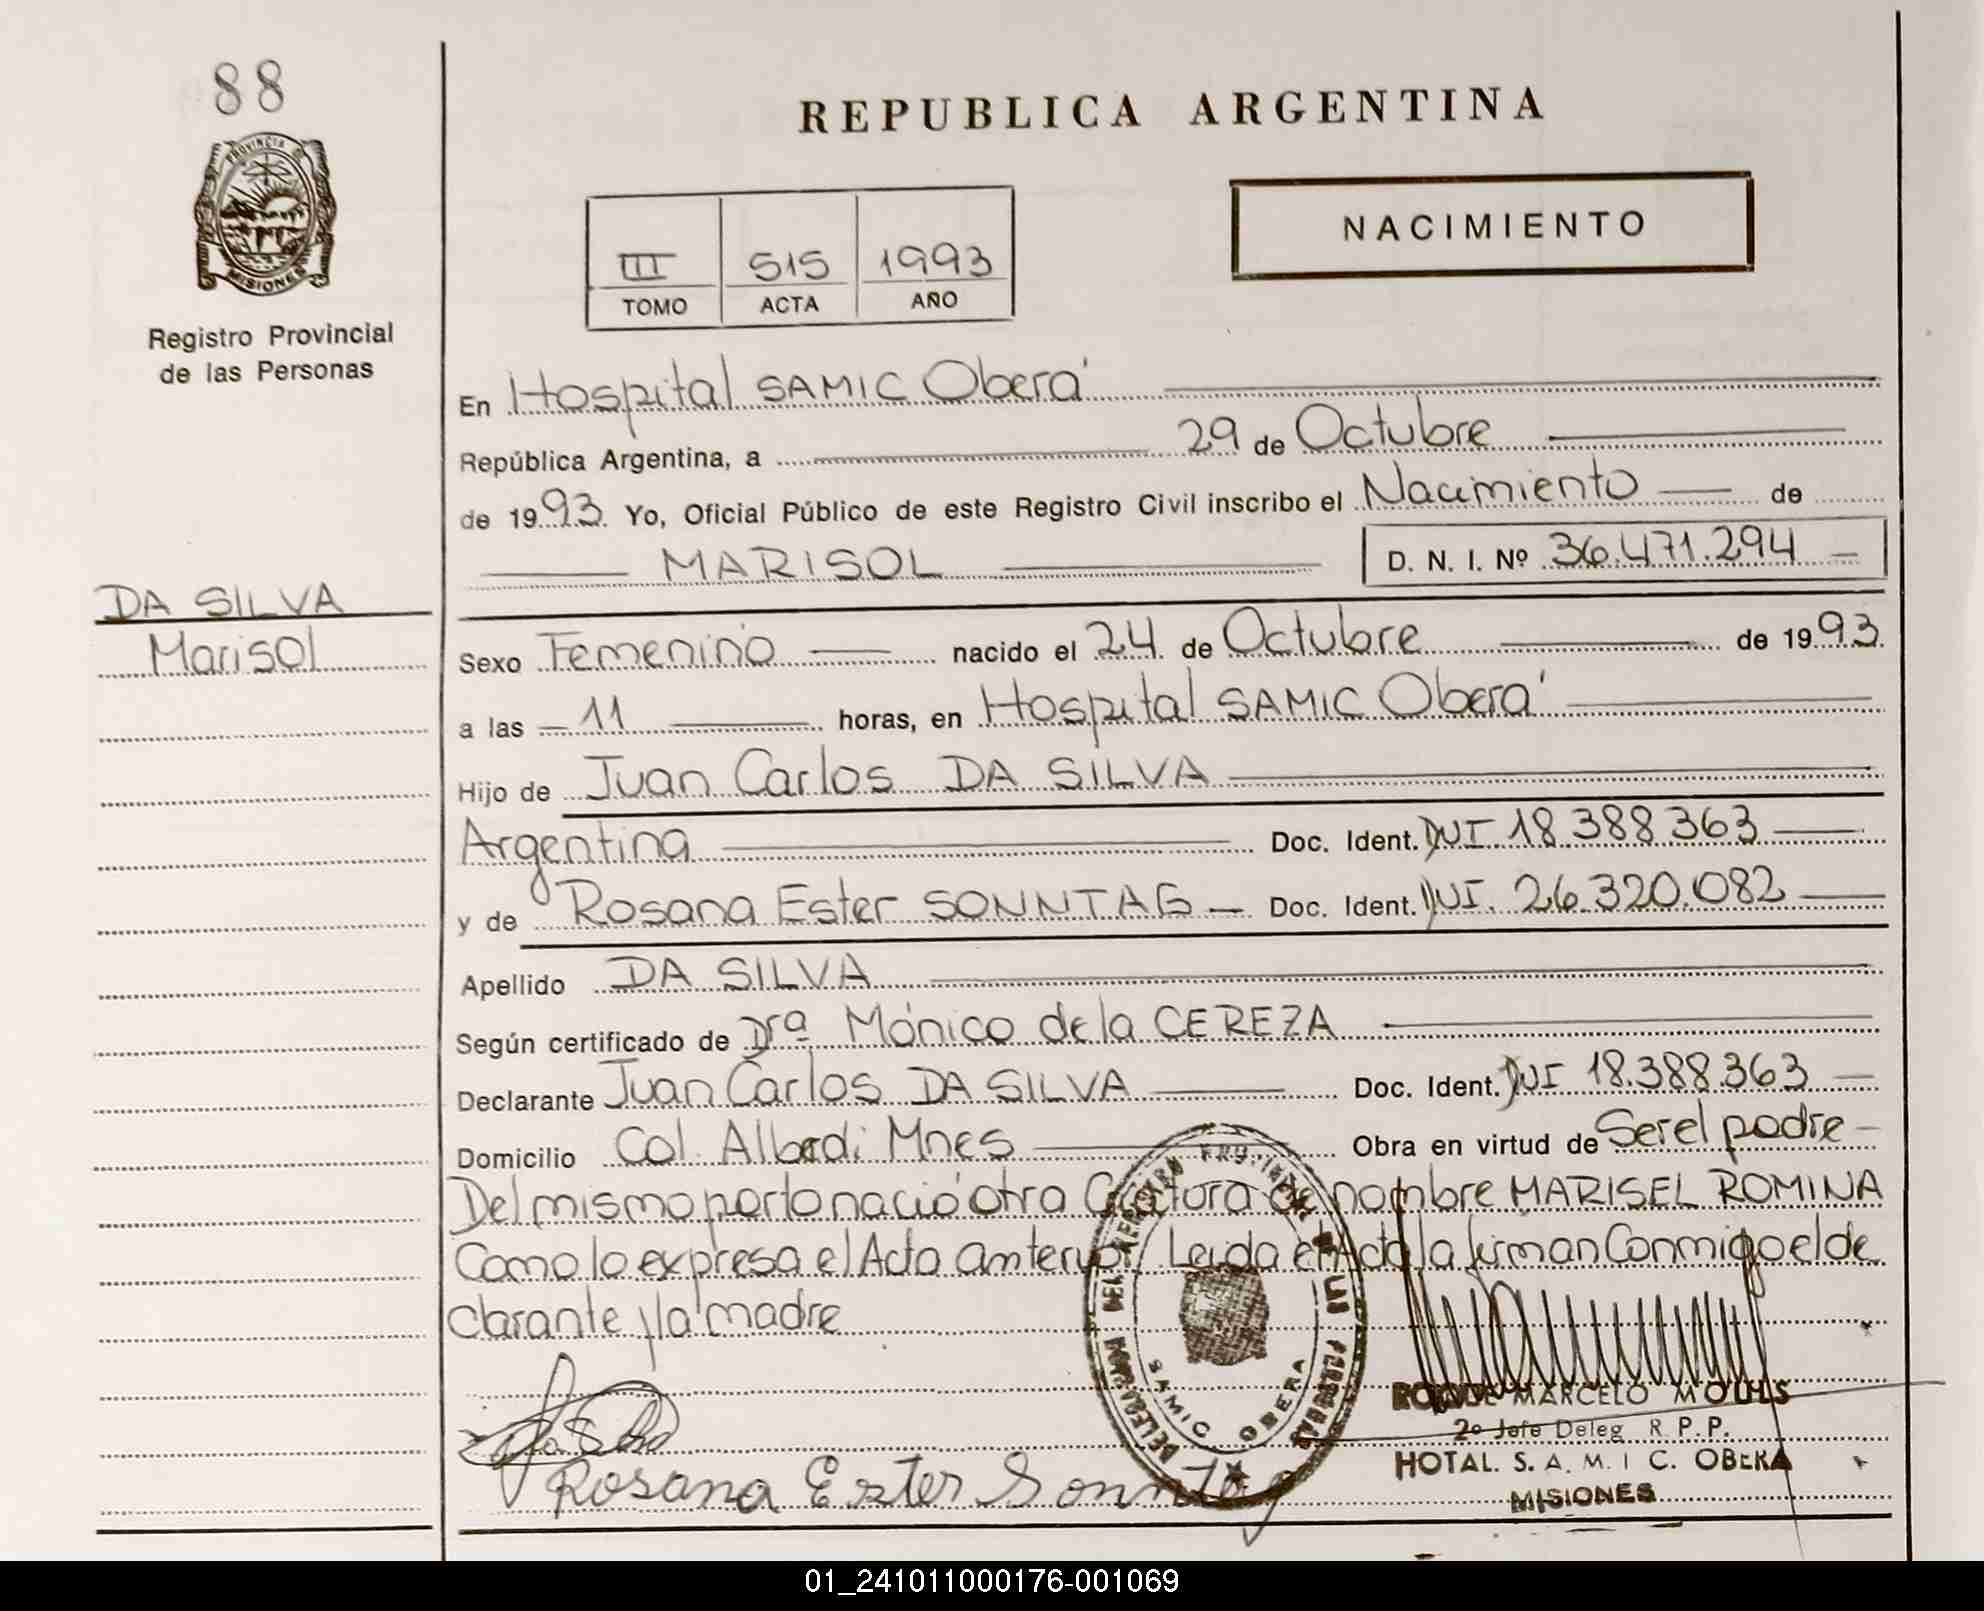 88
PROVINCIA DE
MISIONES
Registro Provincial
de las Personas
DA SILVA
Marisol
REPUBLICA ARGENTINA
III 515 1993
TOMO ACTA AÑO
NACIMIENTO
En Hospital SAMIC Oberá
República Argentina, a 29 de Octubre
de 1993. Yo, Oficial Público de este Registro Civil inscribo el Nacimiento de
MARISOL D. N. I. Nº 36.471.294
Sexo Femenino nacido el 24 de Octubre de 1993.
a las 11 horas, en Hospital SAMIC Oberá
Hijo de Juan Carlos DA SILVA
Argentina Doc. Ident. DNI 18.388.363
y de Rosana Ester SONNTAG Doc. Ident. DNI. 26.320.082
Apellido DA SILVA
Según certificado de Drª Mónico de la CEREZA
Declarante Juan Carlos DA SILVA Doc. Ident. DNI 18.388.363
Domicilio Col. Alberdi Mnes Obra en virtud de Ser el padre
Del mismo parto nació otra Criatura de nombre MARISEL ROMINA
Como lo expresa el Acta anterior Leida el Acta la firman Conmigo el de
clarante y la madre
SAMIC OBERA
Rosana Ester Sonntag
ROQUE MARCELO
2º Jefe Deleg. R. P. P.
HOTAL. S. A. M. I C. OBERA
MISIONES
01_241011000176-001069